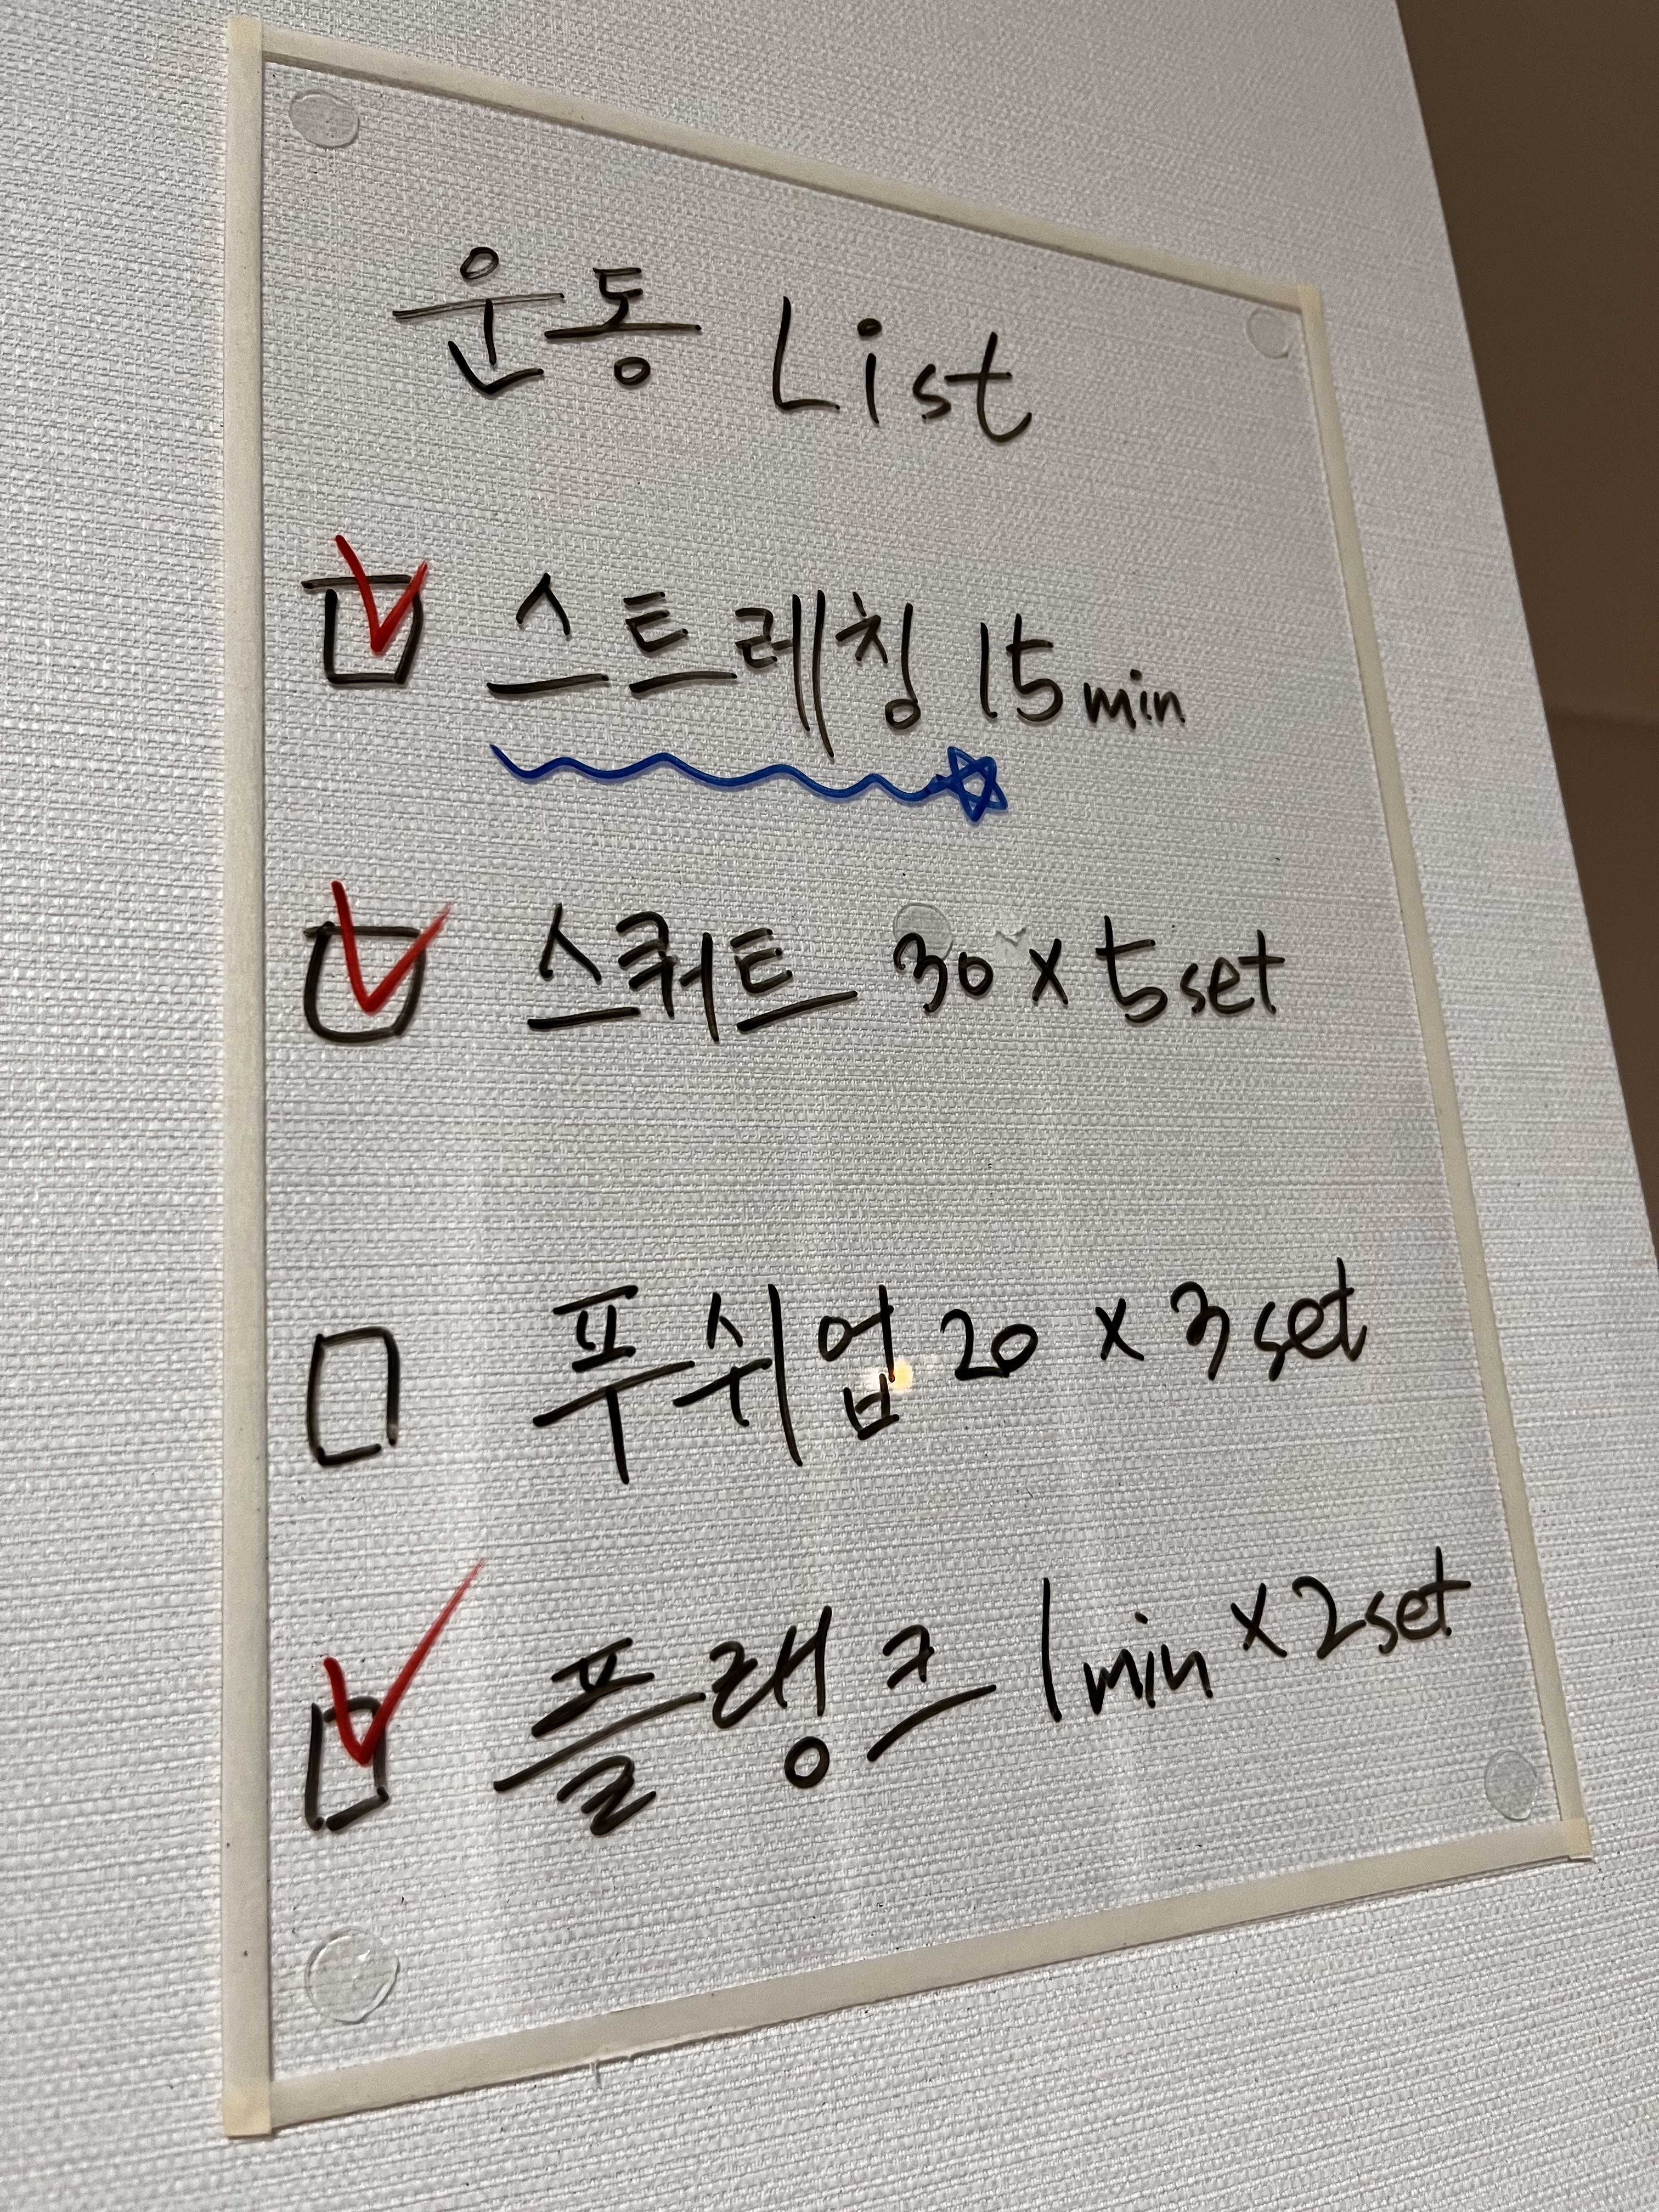 운동 List
스트레칭 15min
스쿼트 30 x 5set
푸쉬업 20 x 3set
플랭크 1min x 2set